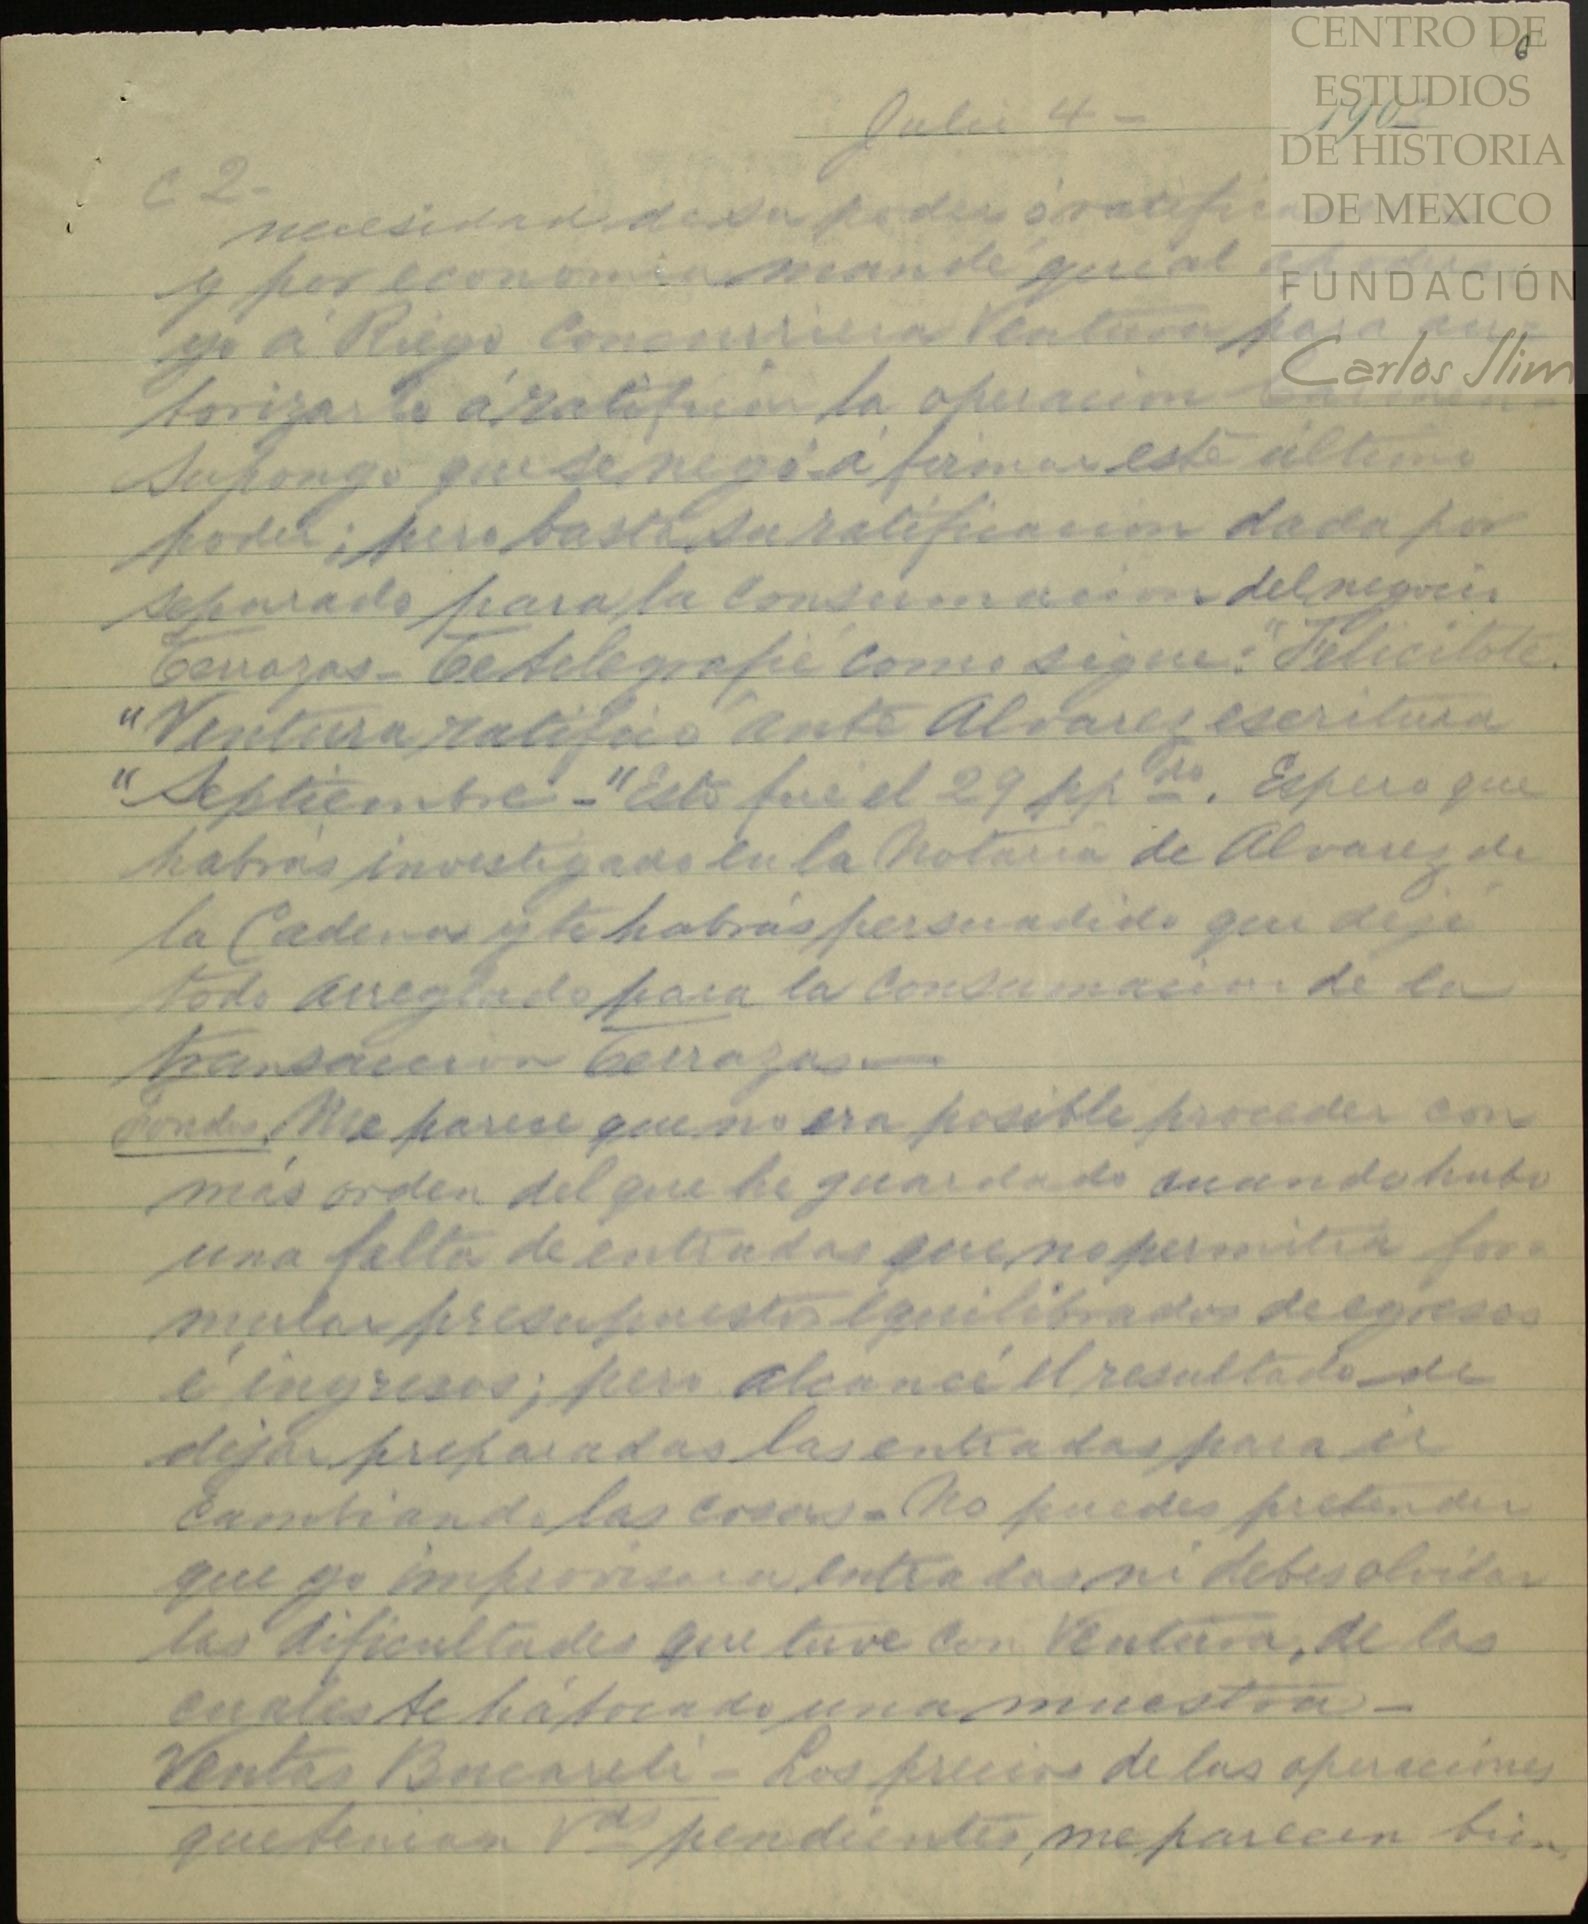 CENTRO DE
ESTUDIOS
DE HISTORIA
DE MEXICO
FUNDACIÓN
Carlos Slim
6
Julio 4 - 190
C 2-
necesidad de su poder ó
y por economia mandé que al
yo á Riego concurriera Ventura para au-
torizarlo á ratificar la operacion
Supongo que se negó á firmar este último
poder; pero basta su ratificacion dada por
separado para la consumacion del negocio
Terrazas - Te telegrafié como sigue: "Felicitote.
"Ventura ratificó ante Alvarez escritura
"Septiembre -" Esto fué el 29 pp do. Espero que
habrás investigado en la Notaría de Alvarez de
la Cadena y te habrás persuadido que dejé
todo arreglado para la consumacion de la
transaccion Terrazas—
Fondos. Me parece que no era posible proceder con
más orden del que he guardado cuando hubo
una falta de entradas que no permitia for-
mular presupuestos equilibrados de egresos
é ingresos; pero alcancé el resultado de
dejar preparadas las entradas para ir
cambiando las cosas - No puedes pretender
que yo improvisara entradas ni debes olvidar
las dificultades que tuve con Ventura, de las
cuales te há tocado una muestra -
Ventas Bucareli - Los precios de las operaciones
que tenian Vds pendientes, me parecen bien,